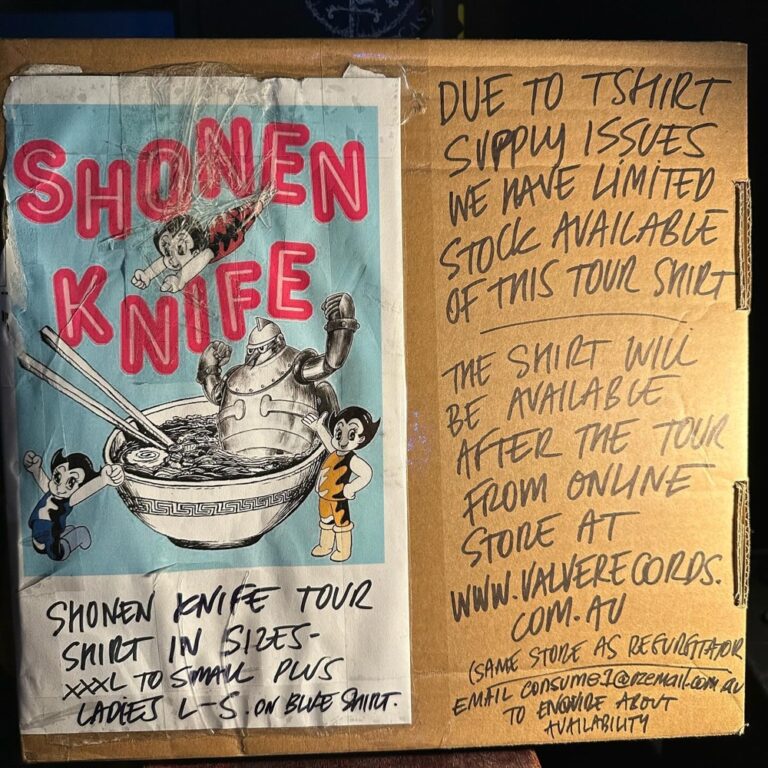 SHONEN
KNIFE
SHONEN KNIFE TOUR
SHIRT IN SIZES-
XXXL TO SMALL PLUS
LADIES L-S. ON BLUE SHIRT.
DUE TO TSHIRT
SUPPLY ISSUES
WE HAVE LIMITED
STOCK AVAILABLE
OF THIS TOUR SHIRT
THE SHIRT WILL
BE AVAILABLE
AFTER THE TOUR
FROM ONLINE
STORE AT
WWW.VALVERECORDS.
COM.AU
(SAME STORE AS REGURGITATOR
EMAIL consume1@ozemail.com.au
TO ENQUIRE ABOUT
AVAILABILITY